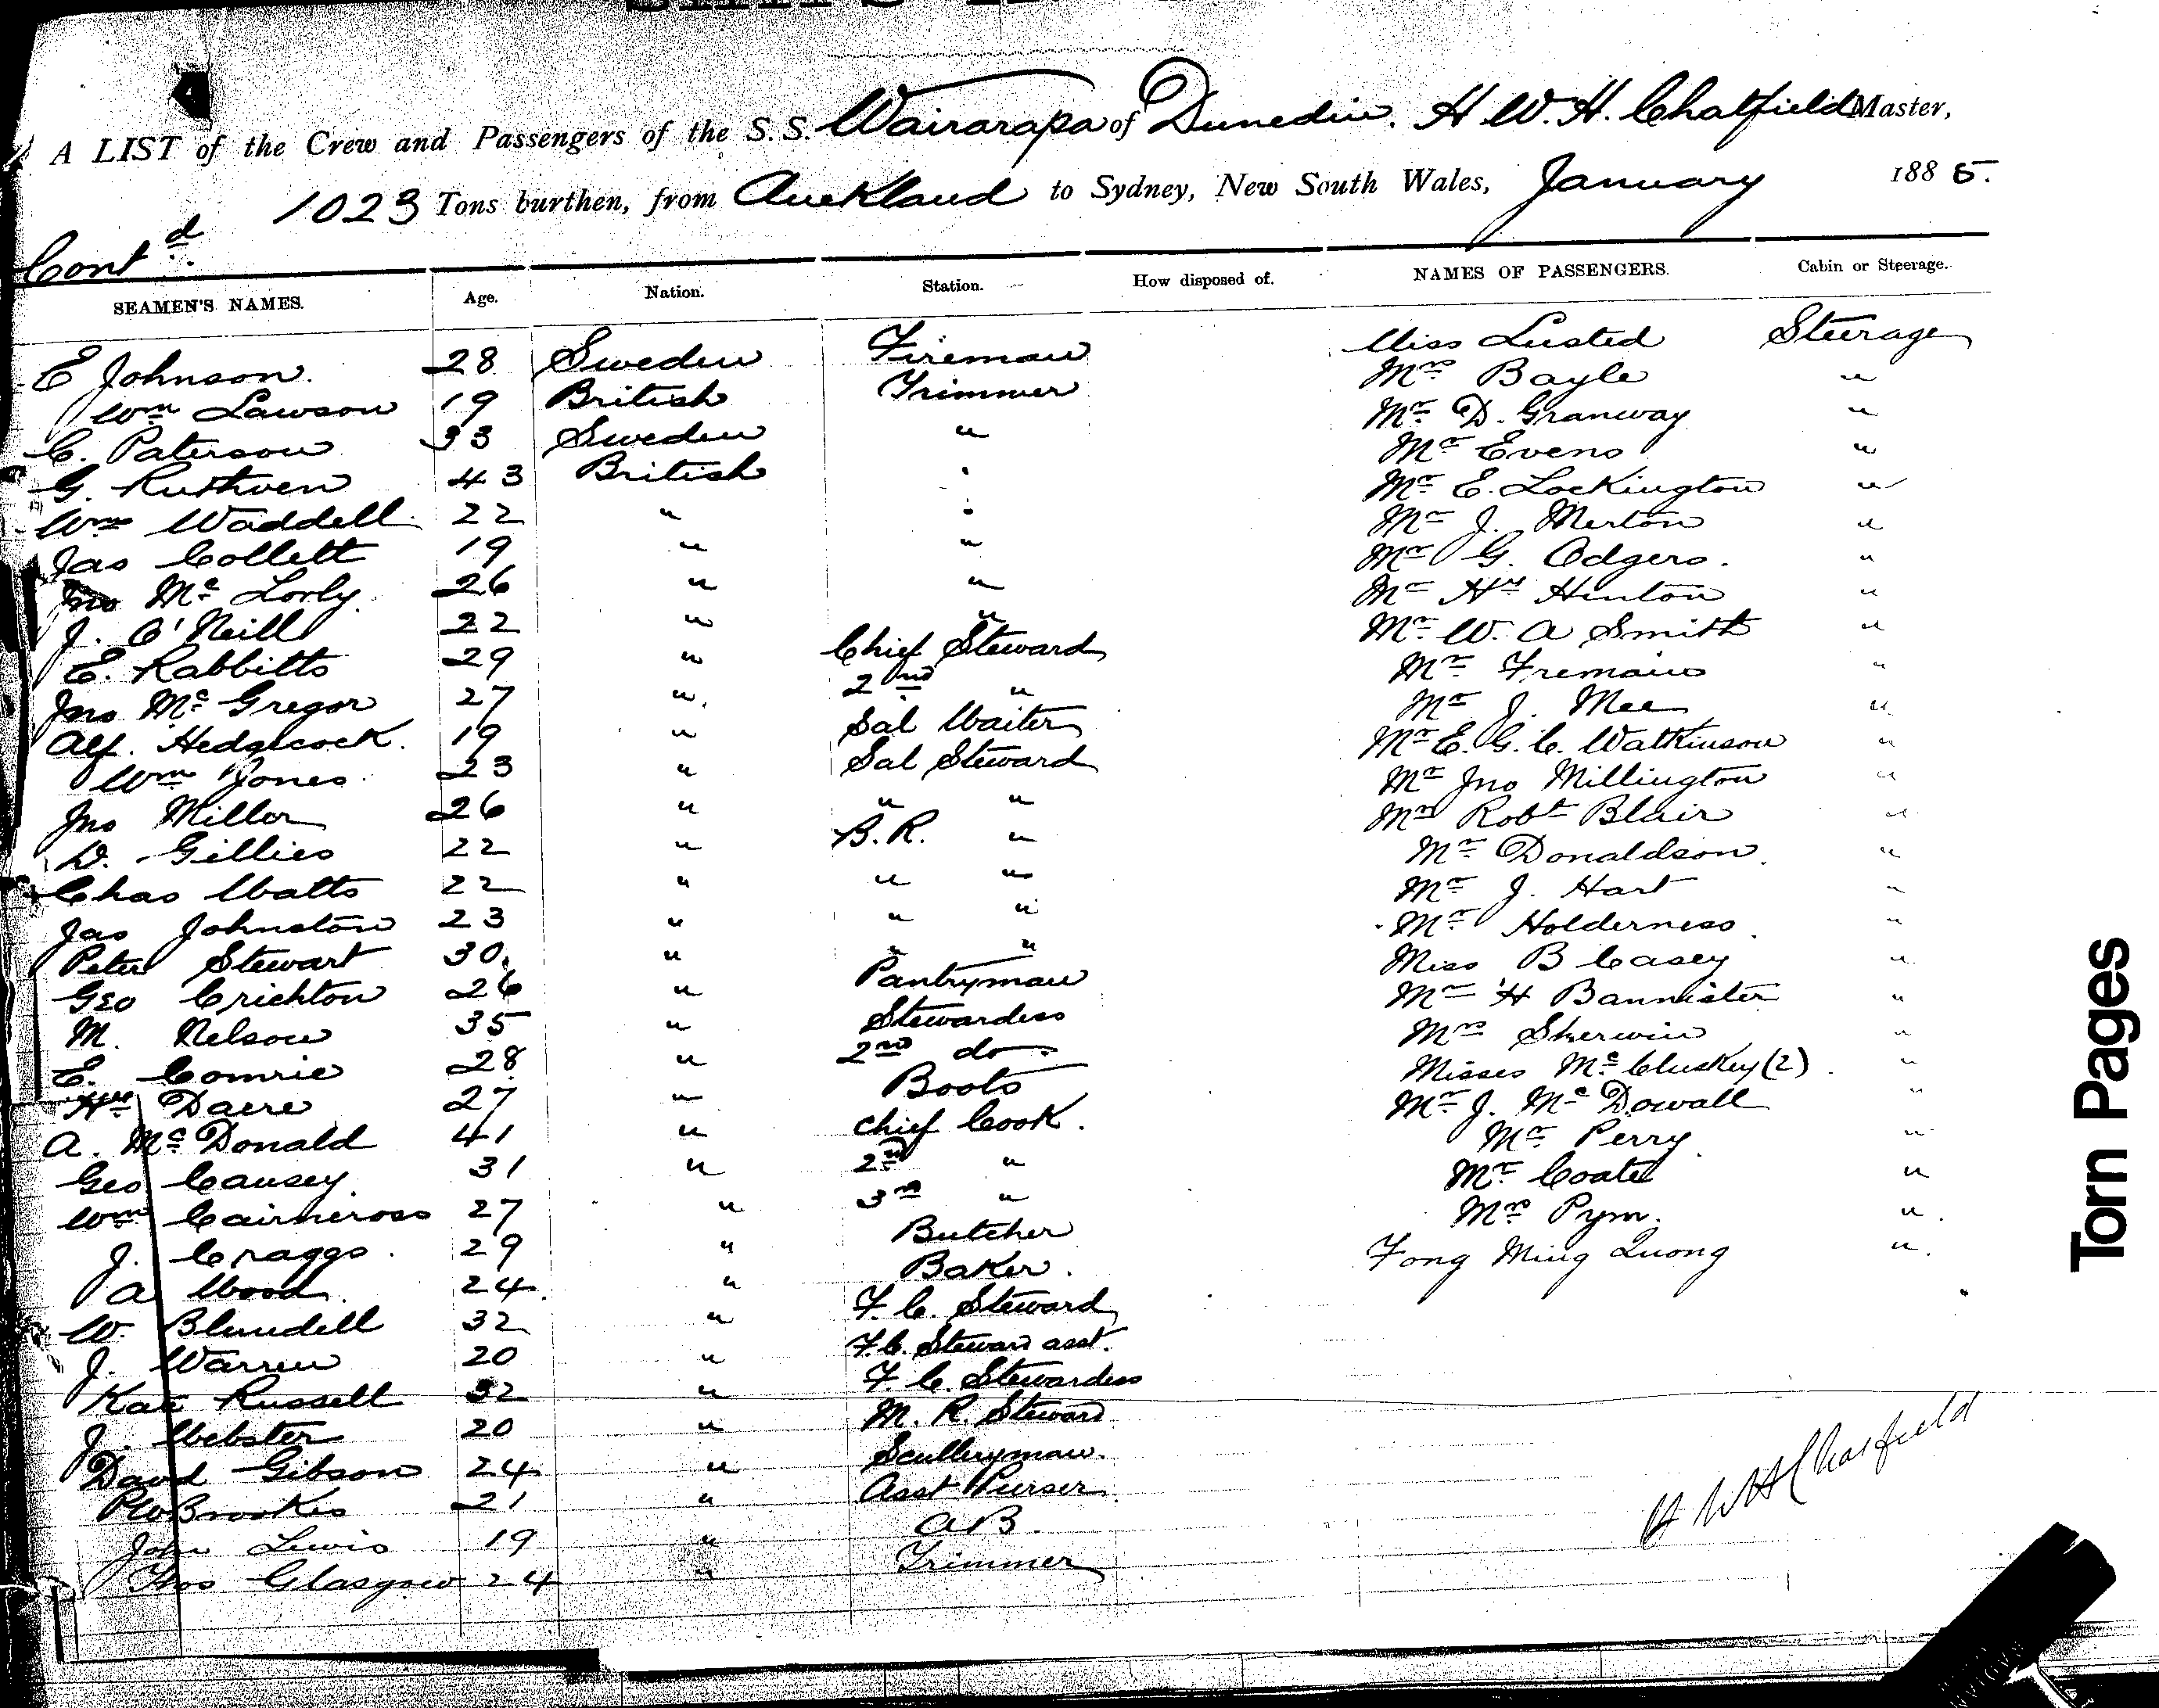 A LIST of the Crew and Passengers of the S.S. Wairarapa of Dunedin. H W. H. Chatfield Master,
1023 Tons burthen, from Auckland to Sydney, New South Wales, January 1885.
Contd.
SEAMEN'S NAMES. Age. Nation. Station. How disposed of. NAMES OF PASSENGERS. Cabin or Steerage.
E Johnson 28 Sweden Fireman Miss Lusted Steerage
Wm Lawson 19 British Trimmer Mrs Bayle "
C. Paterson 33 Sweden " Mr D. Granway "
G. Ruthven 43 British " Mr Evens "
Wm Waddell 22 " " Mr E. Lockington "
Jas Collett 19 " " Mr J. Merton "
Jno Mc Lorly 26 " " Mr G. Odgers. "
J. O'Neill 22 " " Mr Hy Hinton "
E. Rabbitts 29 " Chief Steward Mr W. A Smith "
Jno McGregor 27 " 2nd " Mr Fremaine "
Alf. Hedgecock. 19 " Sal Waiter Mr J. Mee "
Wm Jones 23 " Sal Steward Mr E. G. C. Watkinson "
Jno Miller 26 " " " Mr Jno Millington "
D. Gillies 22 " B.R. " Mr Robt Blair "
Chas Watts 22 " " " Mr Donaldson. "
Jas Johnston 23 " " " Mr J. Hart "
Peter Stewart 30. " " " Mr Holderness. "
Geo Crichton 26 " Pantryman Miss B Casey "
M. Nelson 35 " Stewardess Mr H Bannister "
E. Comrie 28 " 2nd do Mrs Sherwin "
Hy Dacre 27 " Boots Misses McCluskey (2). "
A. McDonald 41 " Chief Cook. Mr J. McDowall "
Geo Causey. 31 " 2nd " Mr Perry "
Wm Cairncross 27 " 3rd " Mr Coates "
J. Craggs. 29 " Butcher Mrs Pym. "
A Wood. 24. " Baker. Fong Ming Quong "
W. Blundell 32 " F. C. Steward
J. Warren 20 " F.C. Steward asst.
Kate Russell 32 " F. C. Stewardess
J. Webster 20 " M. R. Steward
David Gibson 24 " Sculleryman.
P W Brookes 21 " Asst Purser.
John Lewis 19 " AB.
Thos Glasgow 24 " Trimmer
H W H Chatfield
Torn Pages